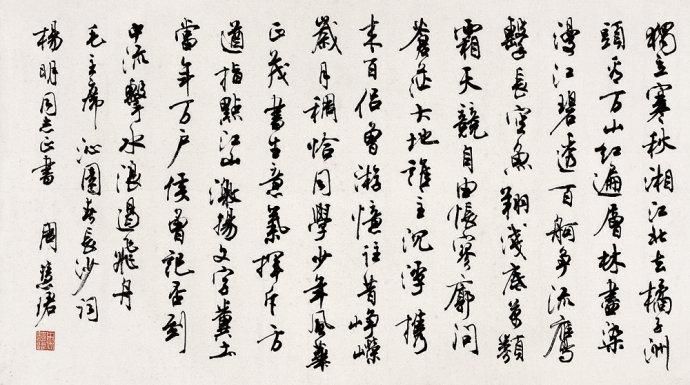 獨立寒秋湘江北去橘子洲
頭看万山红遍層林盡染
漫江碧透百舸争流鷹
擊長空魚翔淺底萬類
霜天競自由悵寥廓問
蒼茫大地誰主沉浮携
来百侣曾游憶往昔峥嶸
歲月稠恰同學少年風華
正茂書生意氣揮斥方
遒指點江山激揚文字糞土
當年万户侯曾記否到
中流擊水浪遏飛舟
毛主席沁園春長沙詞
楊明同志正書 周慧珺